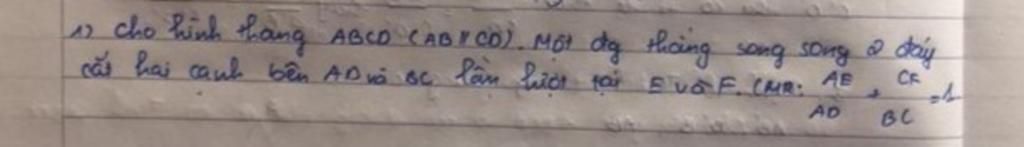 1) cho hình thang ABCD (AB // CD). Một đg thẳng song song 2 đáy
cắt hai cạnh bên AD và BC lần lượt tại E và F. CMR: AE/AD + CF/BC = 1